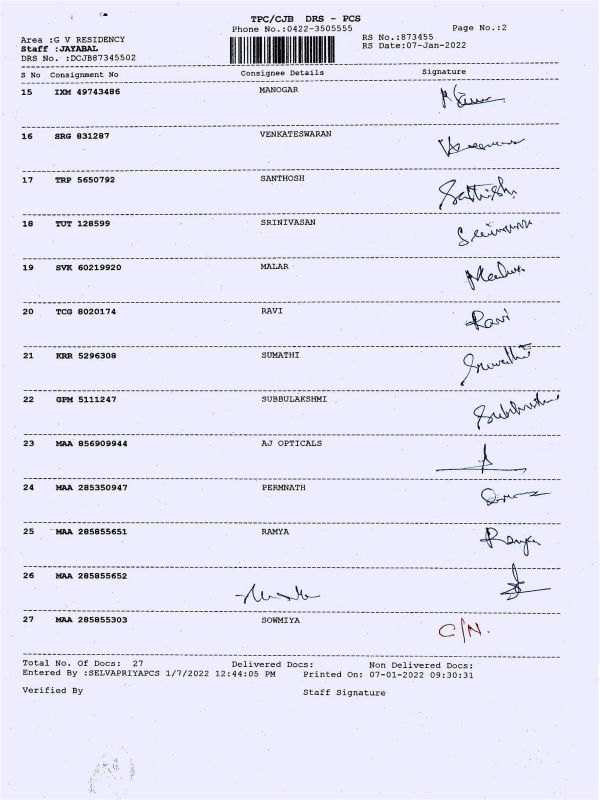 TPC/CJB DRS - PCS
Phone No.:0422-3505555 Page No.:2
Area :G V RESIDENCY RS No.:873455
Staff :JAYABAL RS Date:07-Jan-2022
DRS No. :DCJB87345502
S No Consignment No Consignee Details Signature
15 IXM 49743486 MANOGAR
16 SRG 831287 VENKATESWARAN
17 TRP 5650792 SANTHOSH Sathish
18 TUT 128599 SRINIVASAN
19 SVK 60219920 MALAR
20 TCG 8020174 RAVI Ravi
21 KRR 5296308 SUMATHI
22 GPM 5111247 SUBBULAKSHMI
23 MAA 856909944 AJ OPTICALS
24 MAA 285350947 PERMNATH
25 MAA 285855651 RAMYA
26 MAA 285855652
27 MAA 285855303 SOWMIYA C/N.
Total No. Of Docs: 27 Delivered Docs: Non Delivered Docs:
Entered By :SELVAPRIYAPCS 1/7/2022 12:44:05 PM Printed On: 07-01-2022 09:30:31
Verified By Staff Signature